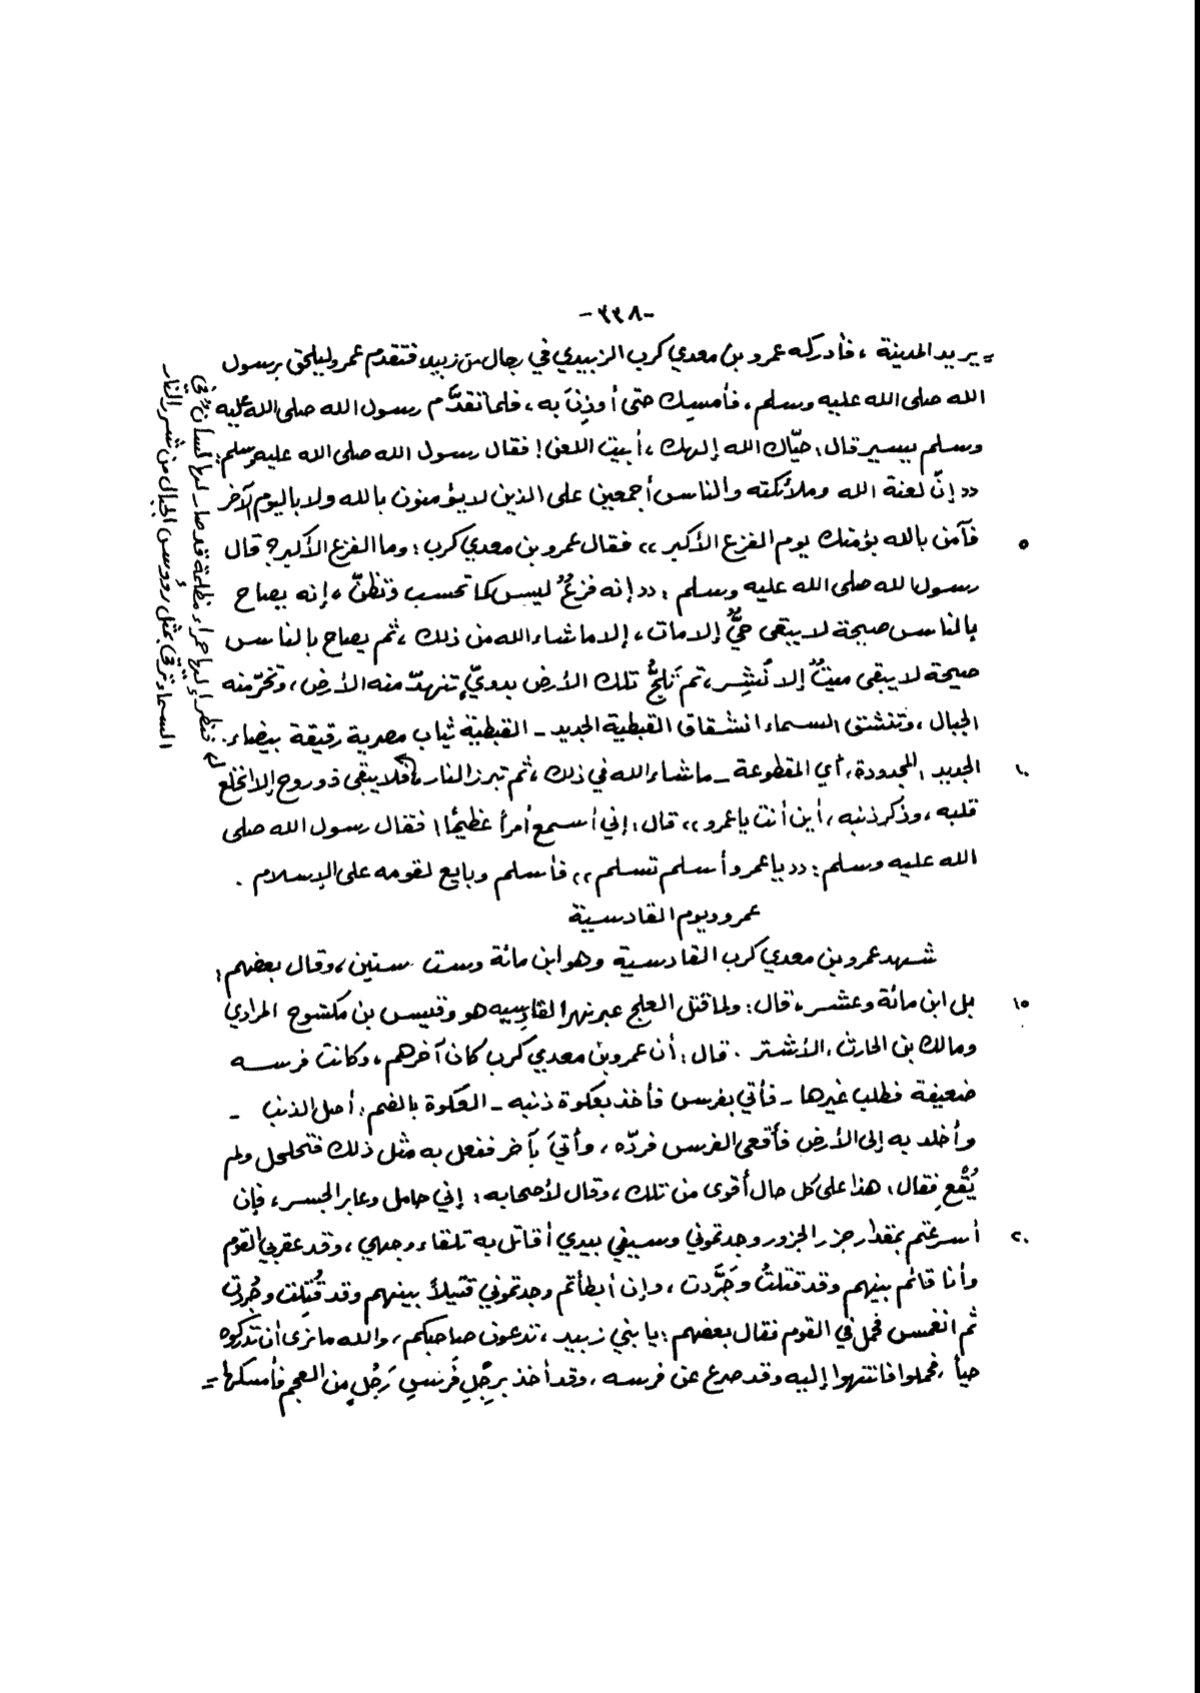 -٣٣٨-
= يريد المدينة ، فأدركه عمرو بن معدي كرب الزبيدي في رجال من زبيد، فتقدم عمرو ليلحق برسول
الله صلى الله عليه وسلم، فأمسك حتى أوذِنَ به، فلما تقدَّم رسول الله صلى الله عليه
وسلم يسير قال: حيّاك الله إلهك، أبيت اللعن! فقال رسول الله صلى الله عليه وسلم:
(( إنَّ لعنة الله وملائكته والناس أجمعين على الذين لا يؤمنون بالله ولا باليوم الآخر
٥ فآمن بالله يؤمنك يوم الفزع الأكبر )) فقال عمرو بن معدي كرب: وما الفزع الأكبر؟ قال
رسول الله صلى الله عليه وسلم: (( إنه فزعٌ ليس كما تحسب وتظنّ، إنه يصاح
بالناس صيحة لا يبقى حيٌّ إلا مات، إلا ما شاء الله من ذلك، ثم يصاح بالناس
صيحة لا يبقى ميتٌ إلا نُشِر، ثم تَلجُّ تلك الأرض بدويٍّ تنهدّ منه الأرض، وتخرّ منه
الجبال، وتنشق السماء انشقاق القبطية الجديد ـ القبطية ثياب مصرية رقيقة بيضاء.
١٠ الجديد: المجدودة، أي المقطوعة ـ ما شاء الله في ذلك، ثم تبرز النار، فلا يبقى ذو روح إلا انخلع
قلبه، وذكر ذنبه، أين أنت يا عمرو )) قال: إني أسمع أمراً عظيماً! فقال رسول الله صلى
الله عليه وسلم: (( يا عمرو أسلم تسلم )) فأسلم وبايع لقومه على الإسلام .
عمرو ويوم القادسية
شهد عمرو بن معدي كرب القادسية وهو ابن مائة وست سنين، وقال بعضهم:
١٥ بل ابن مائة وعشر، قال: ولما قتل العلج عبر نهر القادسيه هو وقيس بن مكشوح المرادي
ومالك بن الحارث، الأشتر . قال: أن عمرو بن معدي كرب كان آخرهم، وكانت فرسه
ضعيفة فطلب غيرها ـ فأتي بفرس فأخذ بعكوة ذنبه ـ العكوة بالضم: أصل الذنب ـ
وأخلد به إلى الأرض فأقعى الفرس فردّه، وأتيَ بآخر ففعل به مثل ذلك فتحلحل ولم
يُقْعِ فقال: هذا على كل حال أقوى من تلك، وقال لأصحابه: إني حامل وعابر الجسر، فإن
٢٠ أسرعتم بمقدار جزر الجزور وجدتموني وسيفي بيدي أقاتل به تلقاء وجهي، وقد عقر بي القوم
وأنا قائم بينهم وقد قتلتُ وجَرَّدت، وإن أبطأتم وجدتموني قتيلاً بينهم وقد قُتِلت وجُردت
ثم انغمس فحمل في القوم فقال بعضهم: يا بني زبيد، تدعون صاحبكم، والله ما نرى أن تدركوه
حياً، فحملوا فانتهوا إليه وقد صرع عن فرسه، وقد أخذ برِجْلِ فَرَسِ رَجُلٍ من العجم فأمسكها =
لم ينظر إليها حمراء مظلمة قد صار لها لسان في
السماء ترمي بمثل رؤوس الجبال من شرر النار